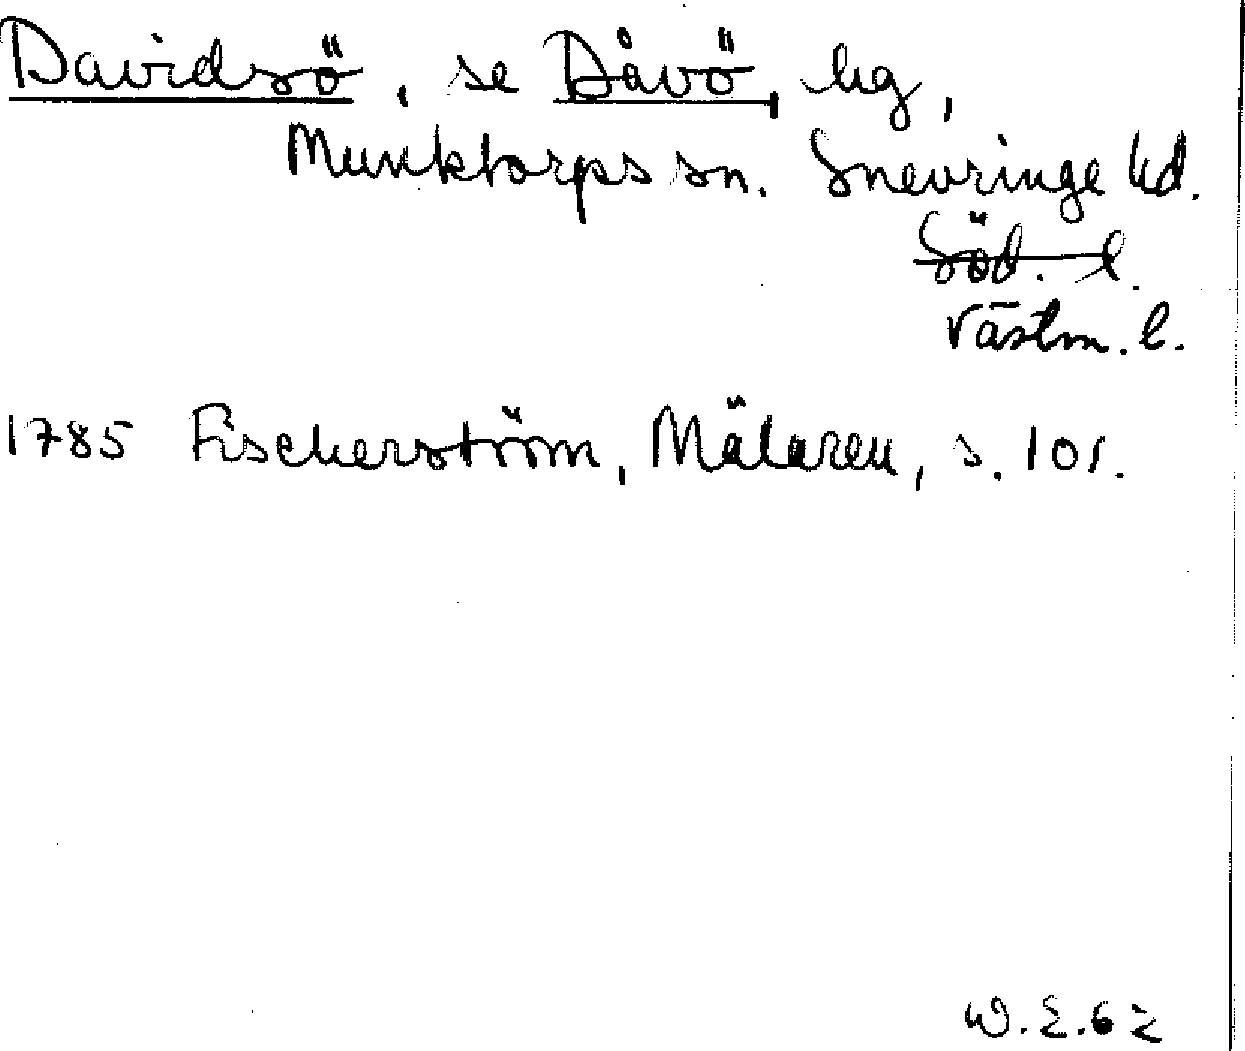 Davidsö, se Dåvö, hg,
Munktorps sn. Snevringe hd.
Söd. l.
Västm. l.
1785 Fischerström, Mälaren, s. 101.
W.E.62